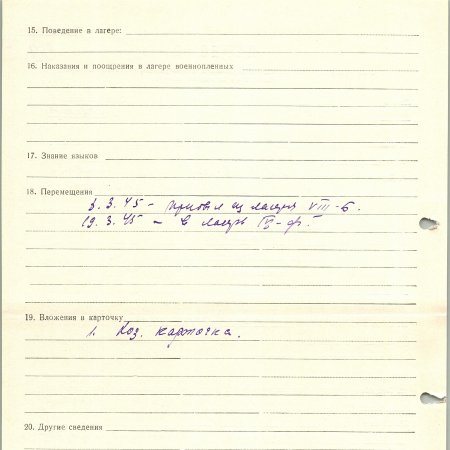 15. Поведение в лагере:
16. Наказания и поощрения в лагере военнопленных
17. Знание языков
18. Перемещения
3.3.45 – прибыл из лагеря VIII-Б.
19.3.45 – в лагерь IV-Ф.
19. Вложения в карточку
1. Хоз. карточка.
20. Другие сведения